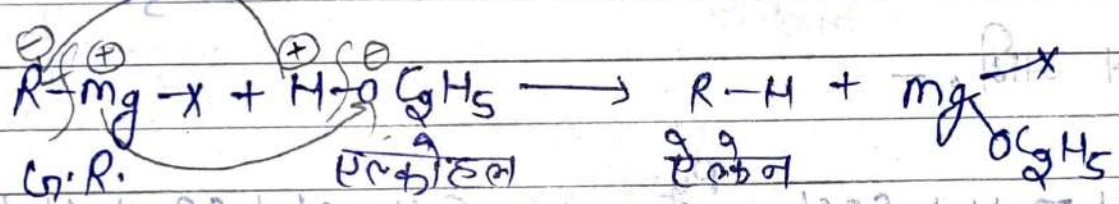 ⊖ ⊕ ⊕ ⊖
R-Mg-X + H-O C2H5 ⟶ R-H + Mg-X
OC2H5
G.R. एल्कोहल ऐल्केन